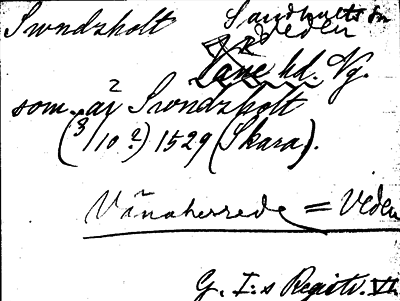 Swndzholt Sandhults sn
Veden
Låne hd. Vg.
som är Swndzholt
(3/10 ?) 1529 (Skara).
Vänaherrede = Veden
G. I:s Registr. VI